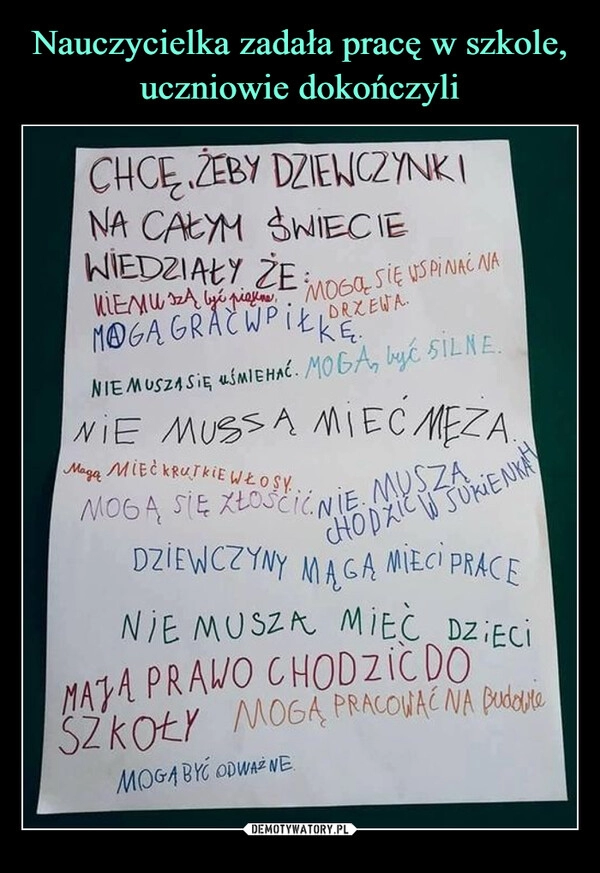 Nauczycielka zadała pracę w szkole,
uczniowie dokończyli
CHCĘ, ŻEBY DZIEWCZYNKI
NA CAŁYM ŚWIECIE
WIEDZIAŁY ŻE:
NIEMUSZĄ być piękne.
MOGĄ SIĘ WSPINAĆ NA
DRZEWA.
MOGĄ GRAĆ W PIŁKĘ.
NIE MUSZĄ SIĘ UŚMIEHAĆ.
MOGĄ być SILNE.
NIE MUSSĄ MIEĆ MĘŻA.
Mogą MIEĆ KRUTKIE WŁOSY.
MOGĄ SIĘ ZŁOŚCIĆ.
NIE MUSZĄ
CHODZIĆ W SUKIENKAH
DZIEWCZYNY MĄGĄ MIECI PRACE
NIE MUSZA MIEĆ DZIECI
MAJĄ PRAWO CHODZIĆ DO
SZKOŁY
MOGĄ PRACOWAĆ NA Budowie
MOGĄ BYĆ ODWAŻNE.
DEMOTYWATORY.PL